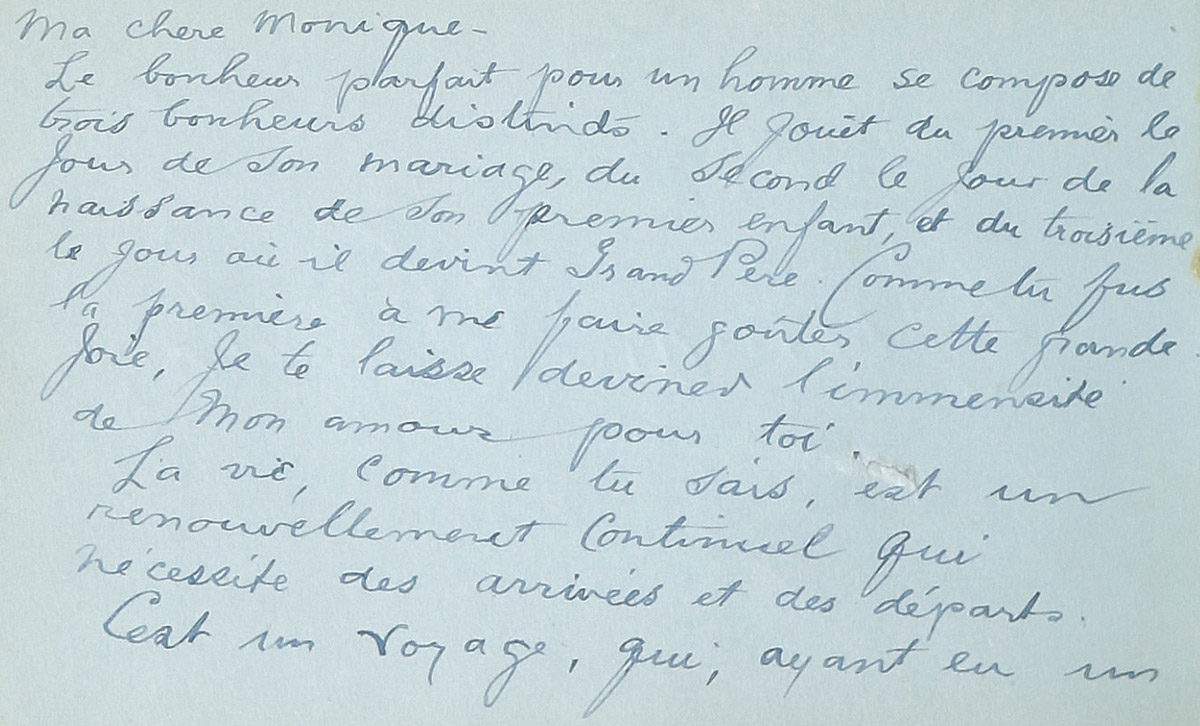 Ma chere Monique -
Le bonheur parfait pour un homme se compose de
trois bonheurs distincts. Il jouèt du premièr le
jour de son mariage, du second le jour de la
naissance de son premier enfant, et du troisième
le jour où il devint Grand Père. Comme tu fus
la première à me faire goûter cette grande
joie, je te laisse deviner l'immensité
de Mon amour pour toi.
La vie, comme tu sais, est un
renouvellement continuel qui
nécessite des arrivées et des départs.
C'est un voyage, qui, ayant eu un